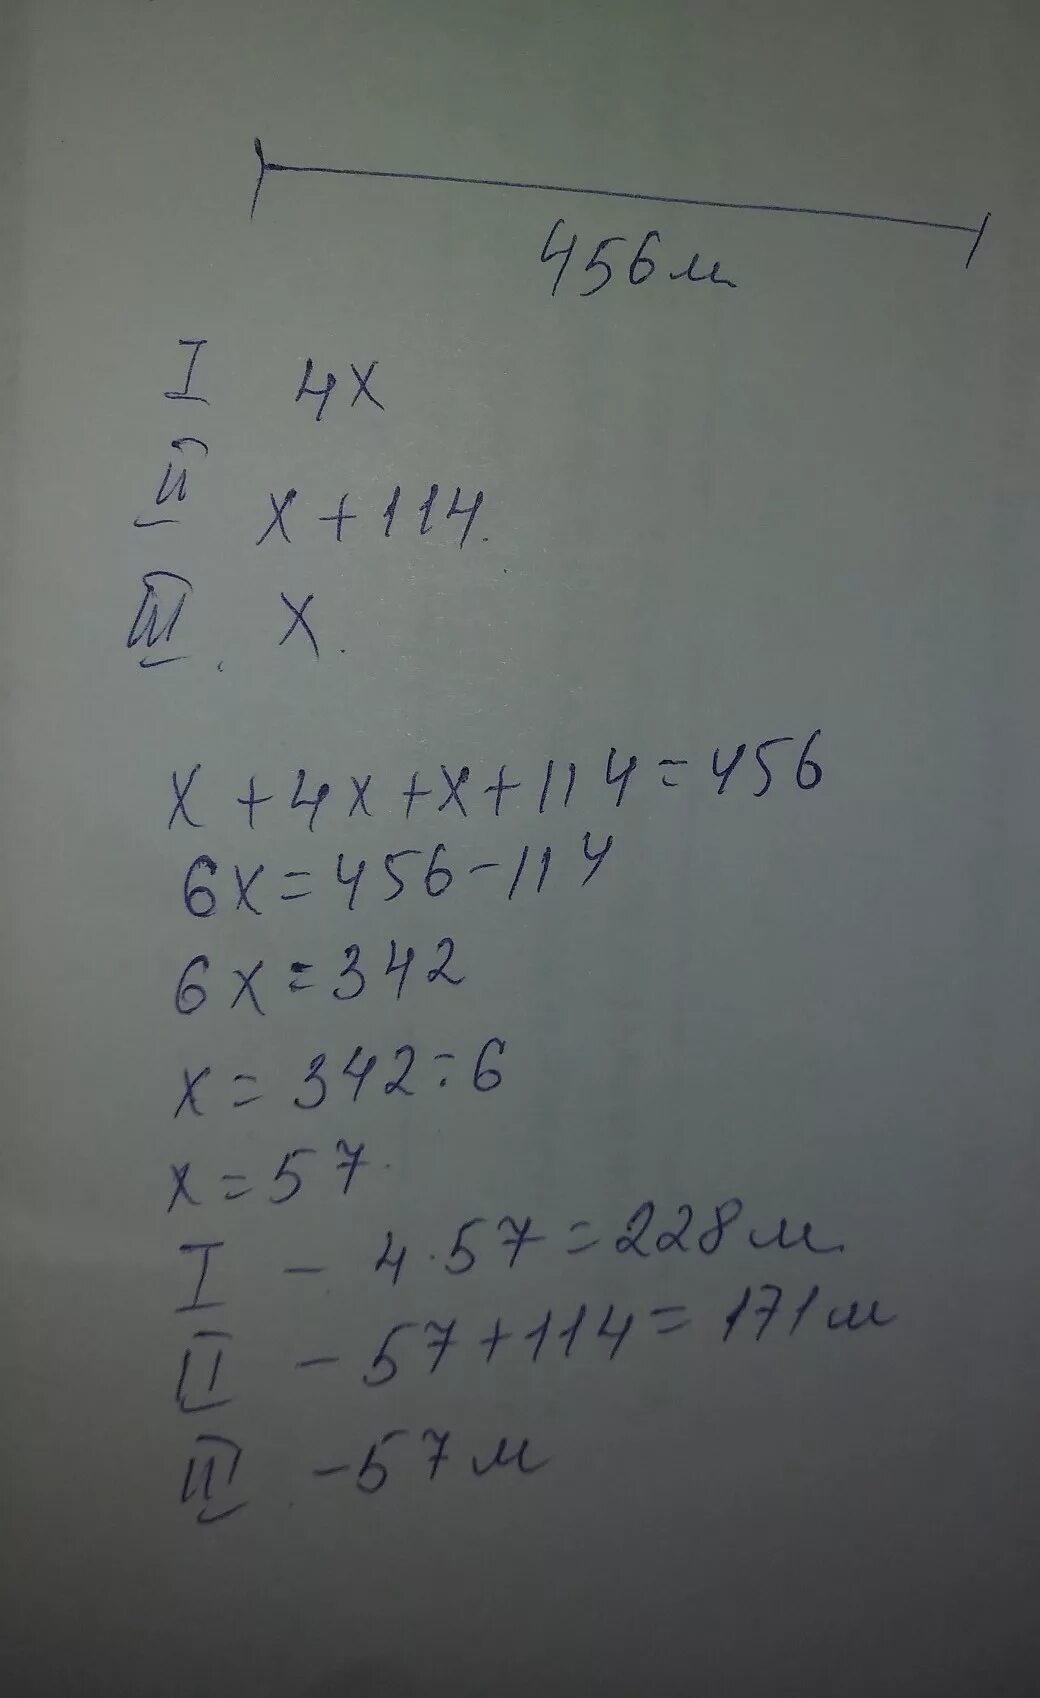 456 м
I 4x
II x + 114.
III. x.
x + 4x + x + 114 = 456
6x = 456 - 114
6x = 342
x = 342 : 6
x = 57.
I - 4 · 57 = 228 м.
II - 57 + 114 = 171 м
III - 57 м